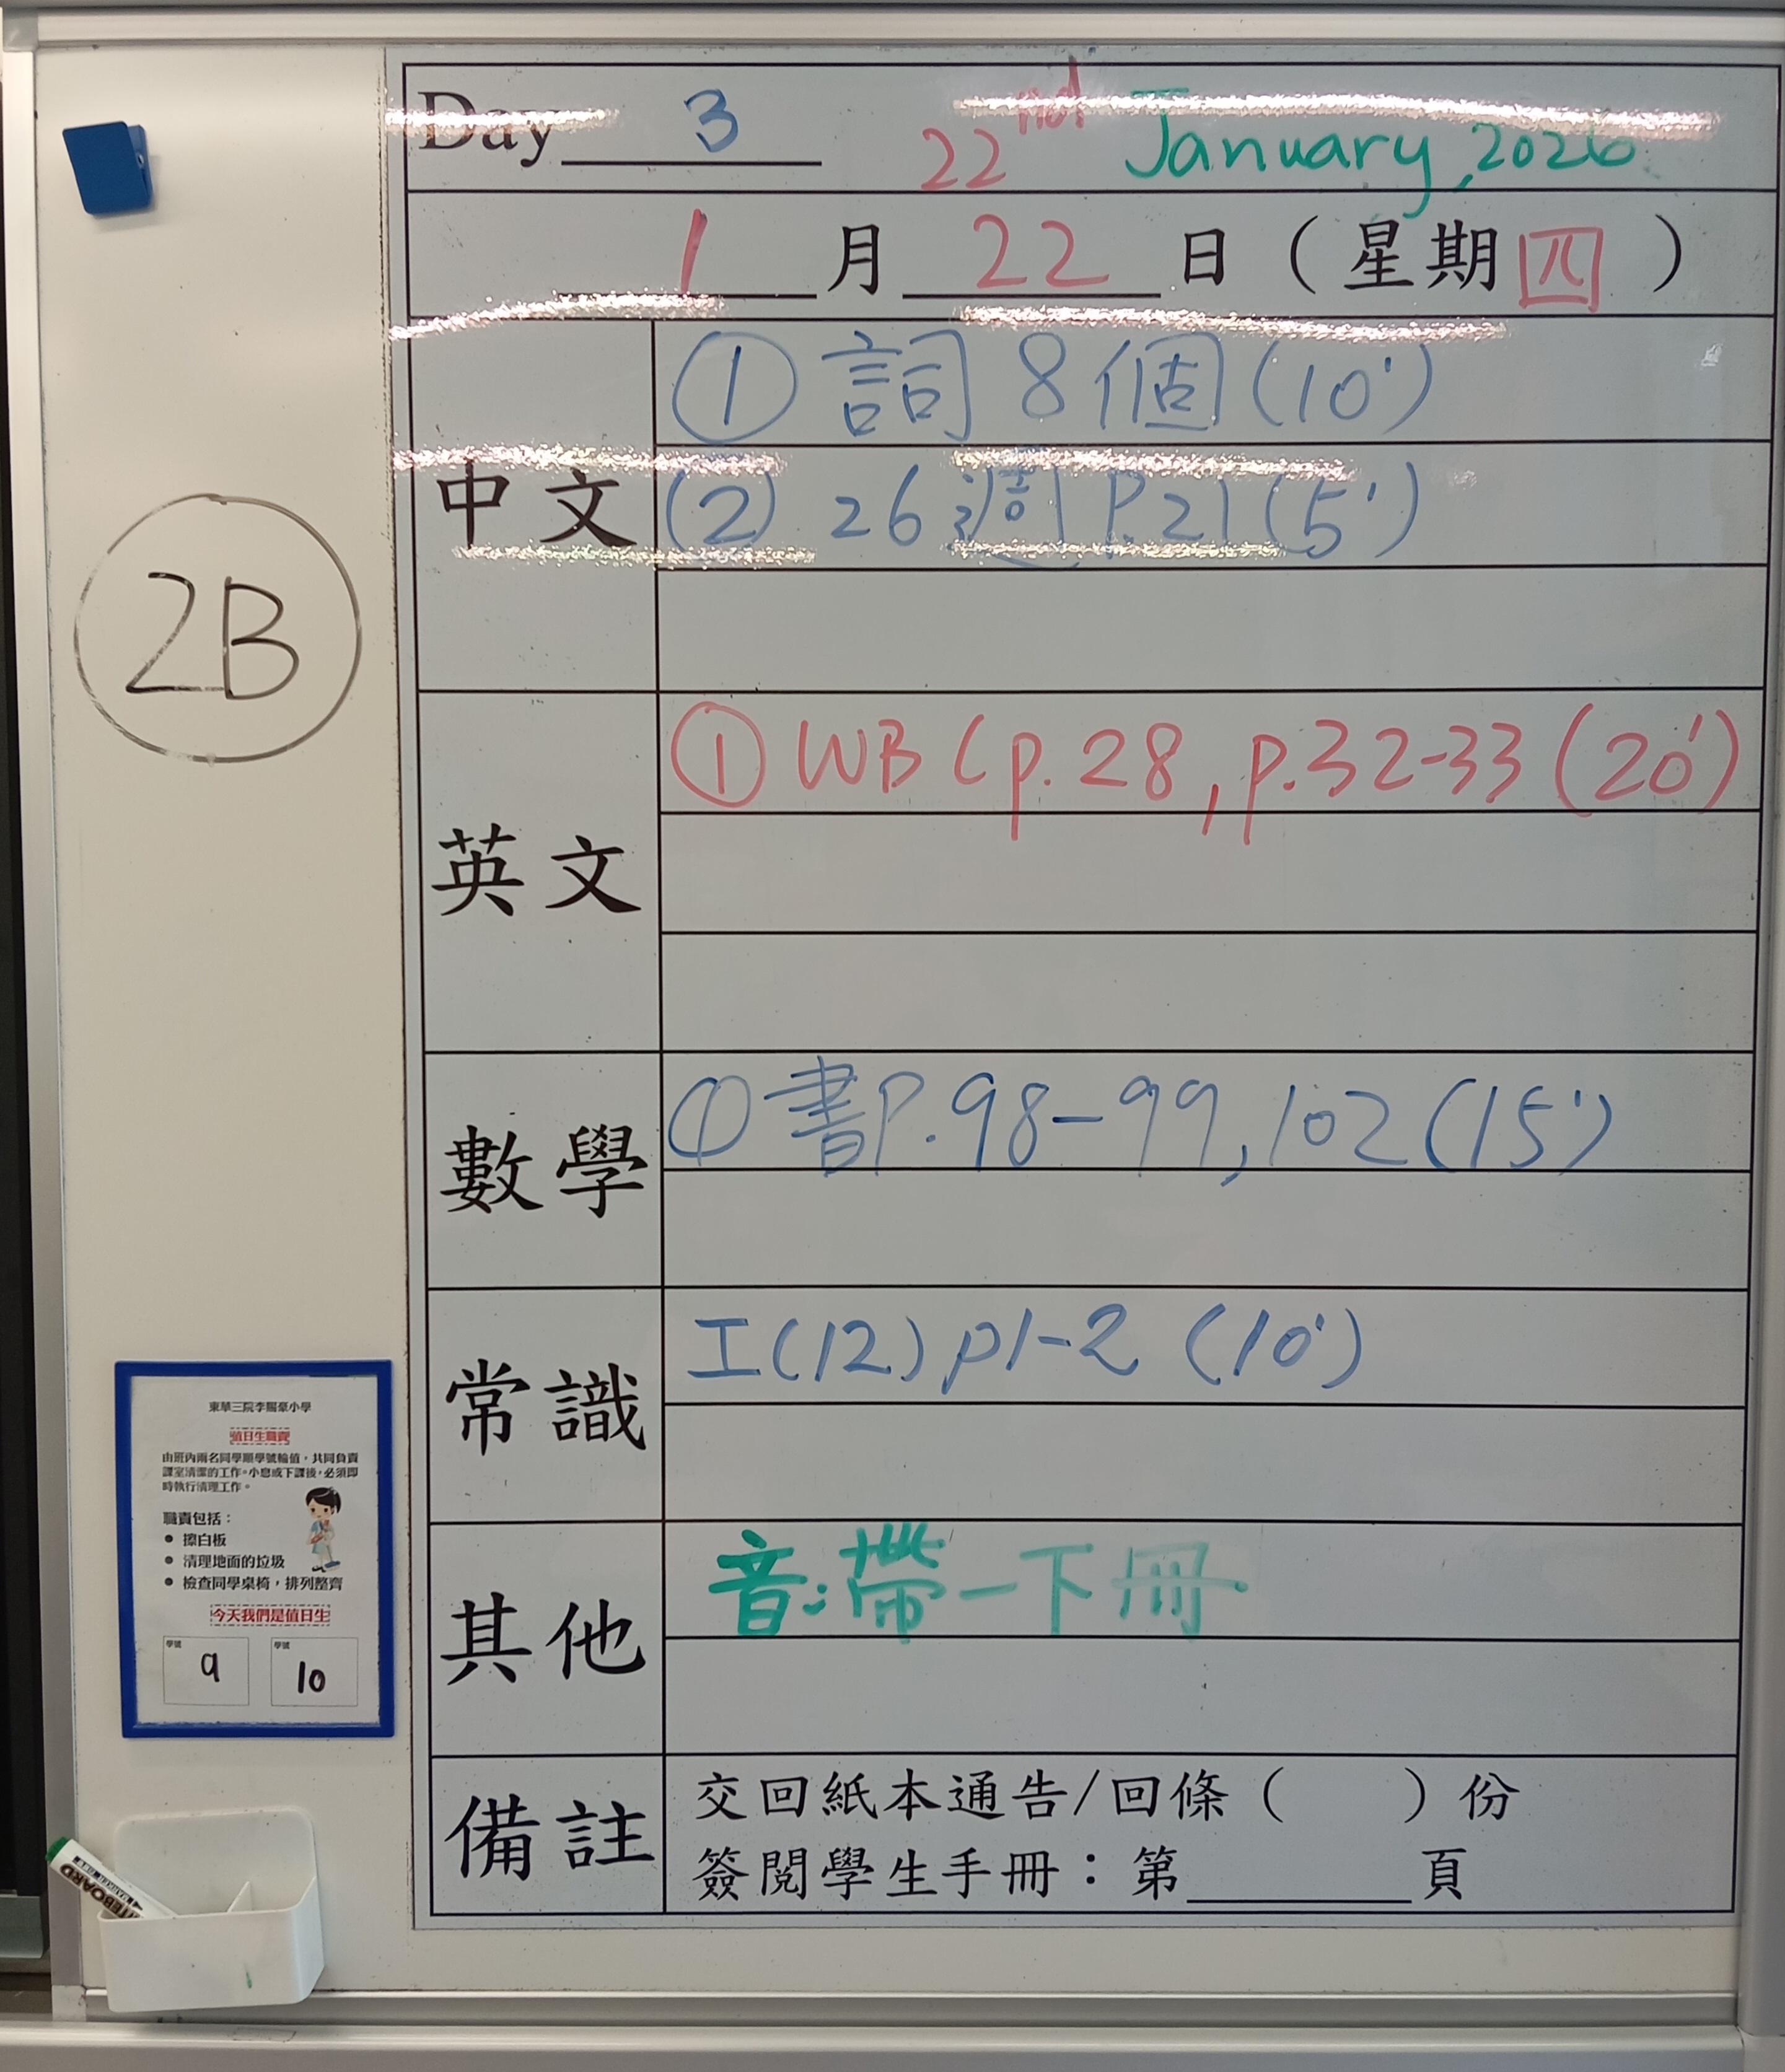 Day 3 22nd January, 2026
1 月 22 日 ( 星期 四 )
中文
① 詞 8 個 (10')
(2) 26 週 P.21 (5')
英文
① WB (p.28, p.32-33 (20')
數學
① 書P.98-99, 102 (15')
常識
工(12) p1-2 (10')
其他
音:帶一下冊
備註
交回紙本通告/回條 ( ) 份
簽閱學生手冊:第 頁
2B
東華三院李賜豪小學
值日生職責
由班內兩名同學順學號輪值,共同負責
課室清潔的工作。小息或下課後,必須即
時執行清理工作。
職責包括:
● 擦白板
● 清理地面的垃圾
● 檢查同學桌椅,排列整齊
今天我們是值日生
學號 學號
9 10